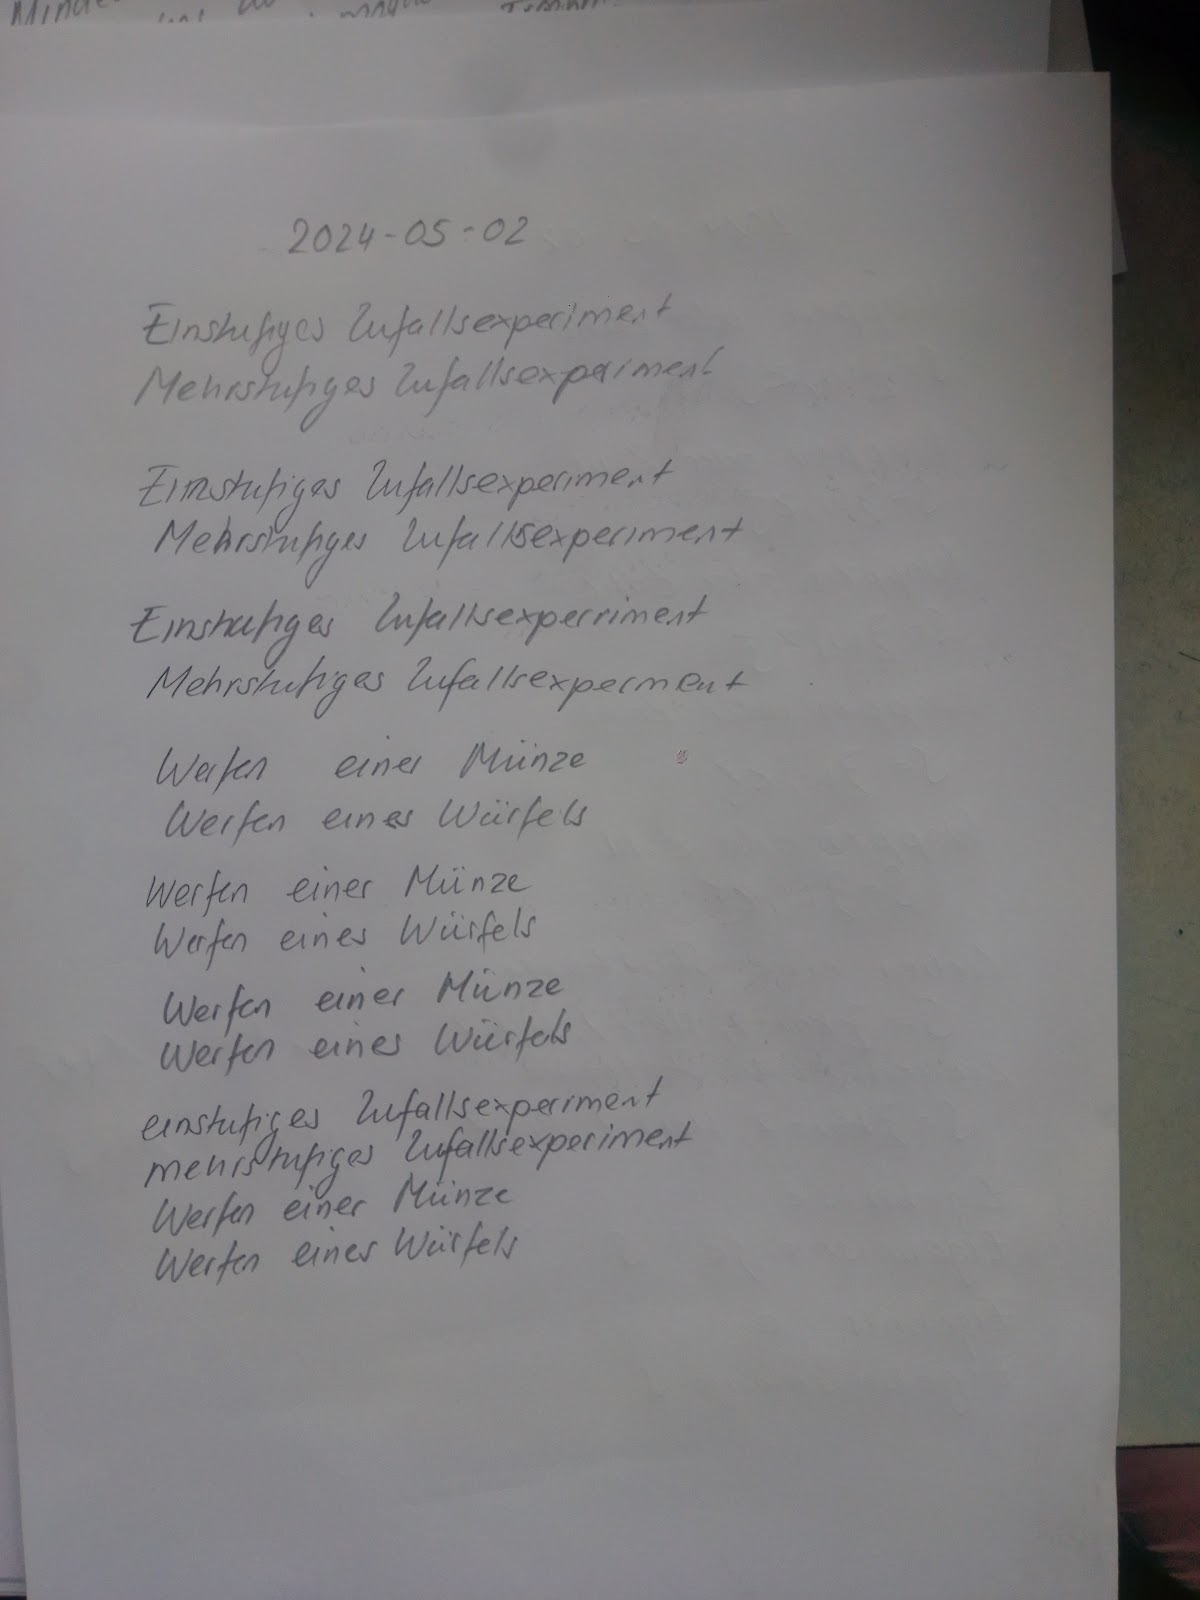 2024-05-02
Einstufiges Zufallsexperiment
Mehrstufiges Zufallsexperiment
Einstufiges Zufallsexperiment
Mehrstufiges Zufallsexperiment
Einstufiges Zufallsexperriment
Mehrstufiges Zufallsexperment
Werfen einer Münze
Werfen eines Würfels
Werfen einer Münze
Werfen eines Würfels
Werfen einer Münze
Werfen eines Würfels
einstufiges Zufallsexperiment
mehrstufiges Zufallsexperiment
Werfen einer Münze
Werfen eines Würfels